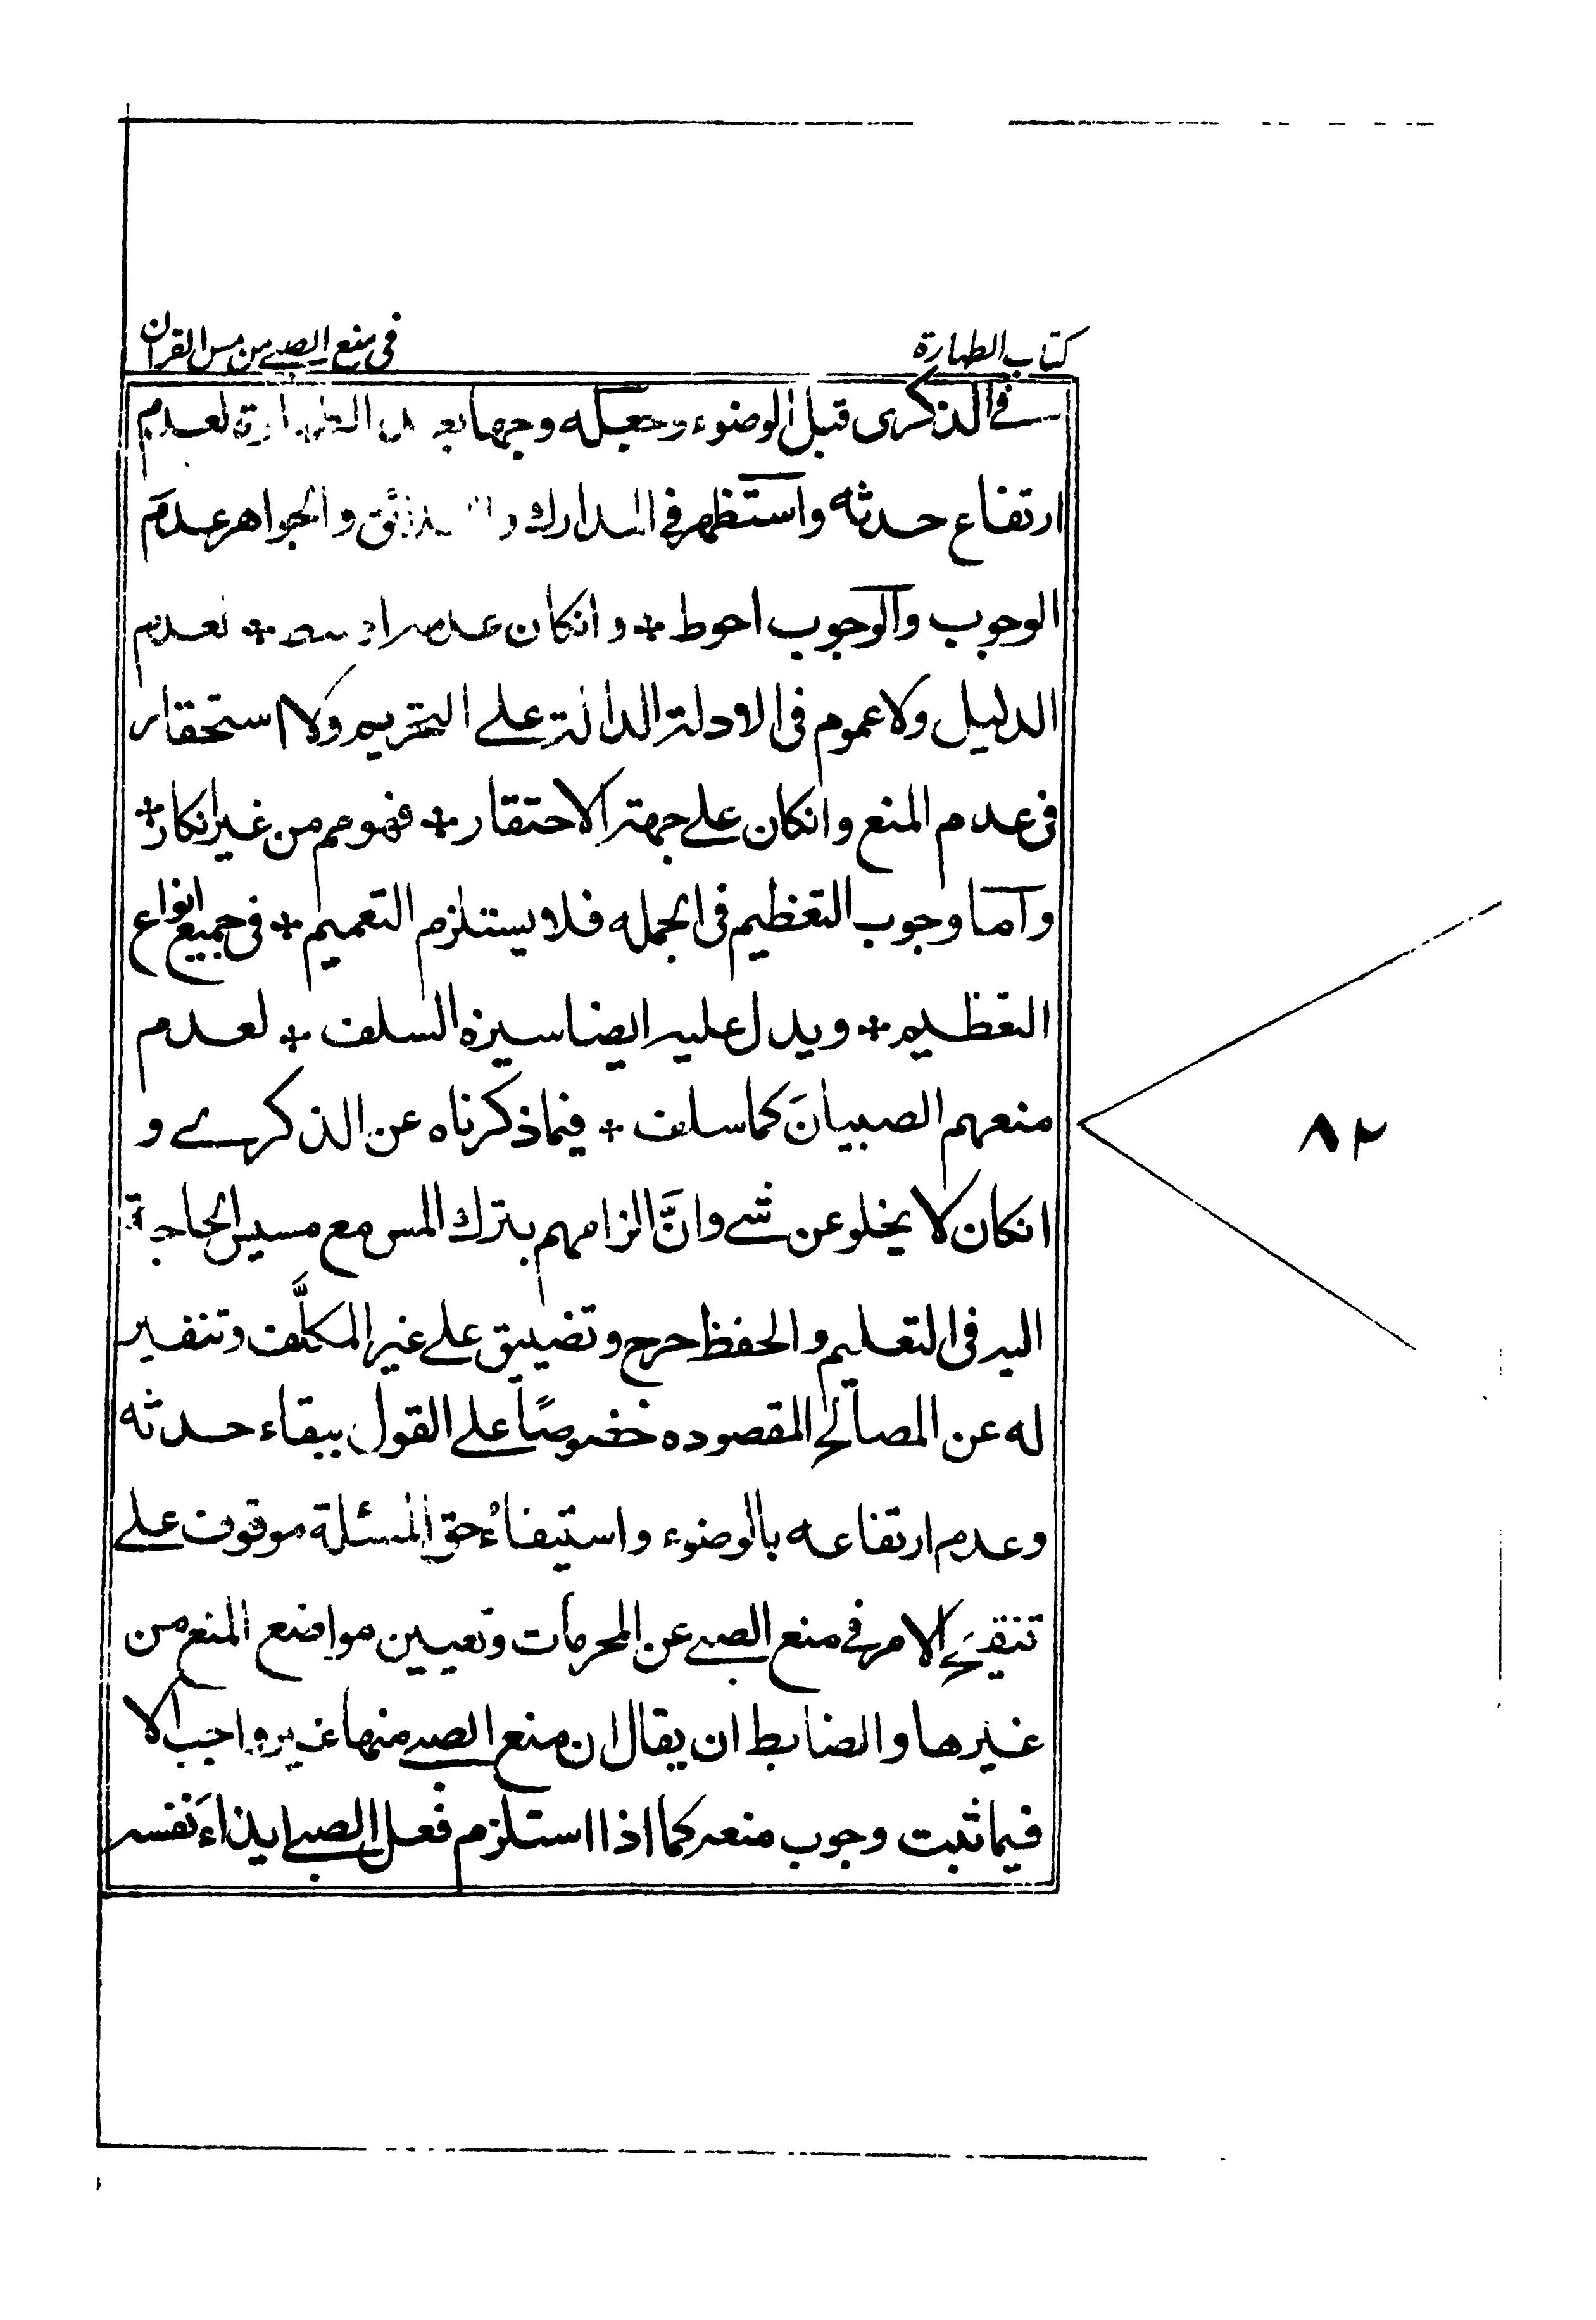 كتاب الطهارة
في منع الصبي من مس القران
في الذكرى قبل الوضوء وجعله وجها بعد الطهارة لعدم
ارتفاع حدثه واستظهر في المدارك والحدائق والجواهر عدم
الوجوب والوجوب احوط * وانكان عدمه * لعدم
الدليل ولا عموم في الادلة الدالة على التحريم ولا استحقار
في عدم المنع وانكان على جهة الاحتقار * فهو مم من غير انكار *
واما وجوب التعظيم في الجمله فلا يستلزم التعميم * في جميع انواع
التعظيم * ويدل عليه ايضا سيرة السلف * لعدم
منعهم الصبيانَ كما سلف * فيما ذكرناه عن الذكرى و
انكان لا يخلو عن شي وانَّ الزامهم بترك المس مع مسيس الحاجة
اليه في التعليم والحفظ حرج وتضييق على غير المكلَّف وتنفير
له عن المصالح المقصوده خصوصًا على القول ببقاء حدثه
وعدم ارتفاعه بالوضوء واستيفاءُ حق المسئلة موقوف على
تنقيح الامر في منع الصبي عن المحرمات وتعيين مواضع المنع من
غيرها والضابط ان يقال ان منع الصبي منها غير واجب الا
فيما ثبت وجوب منعه كما اذا استلزم فعل الصبي ايذاءَ نفسه
٨٢